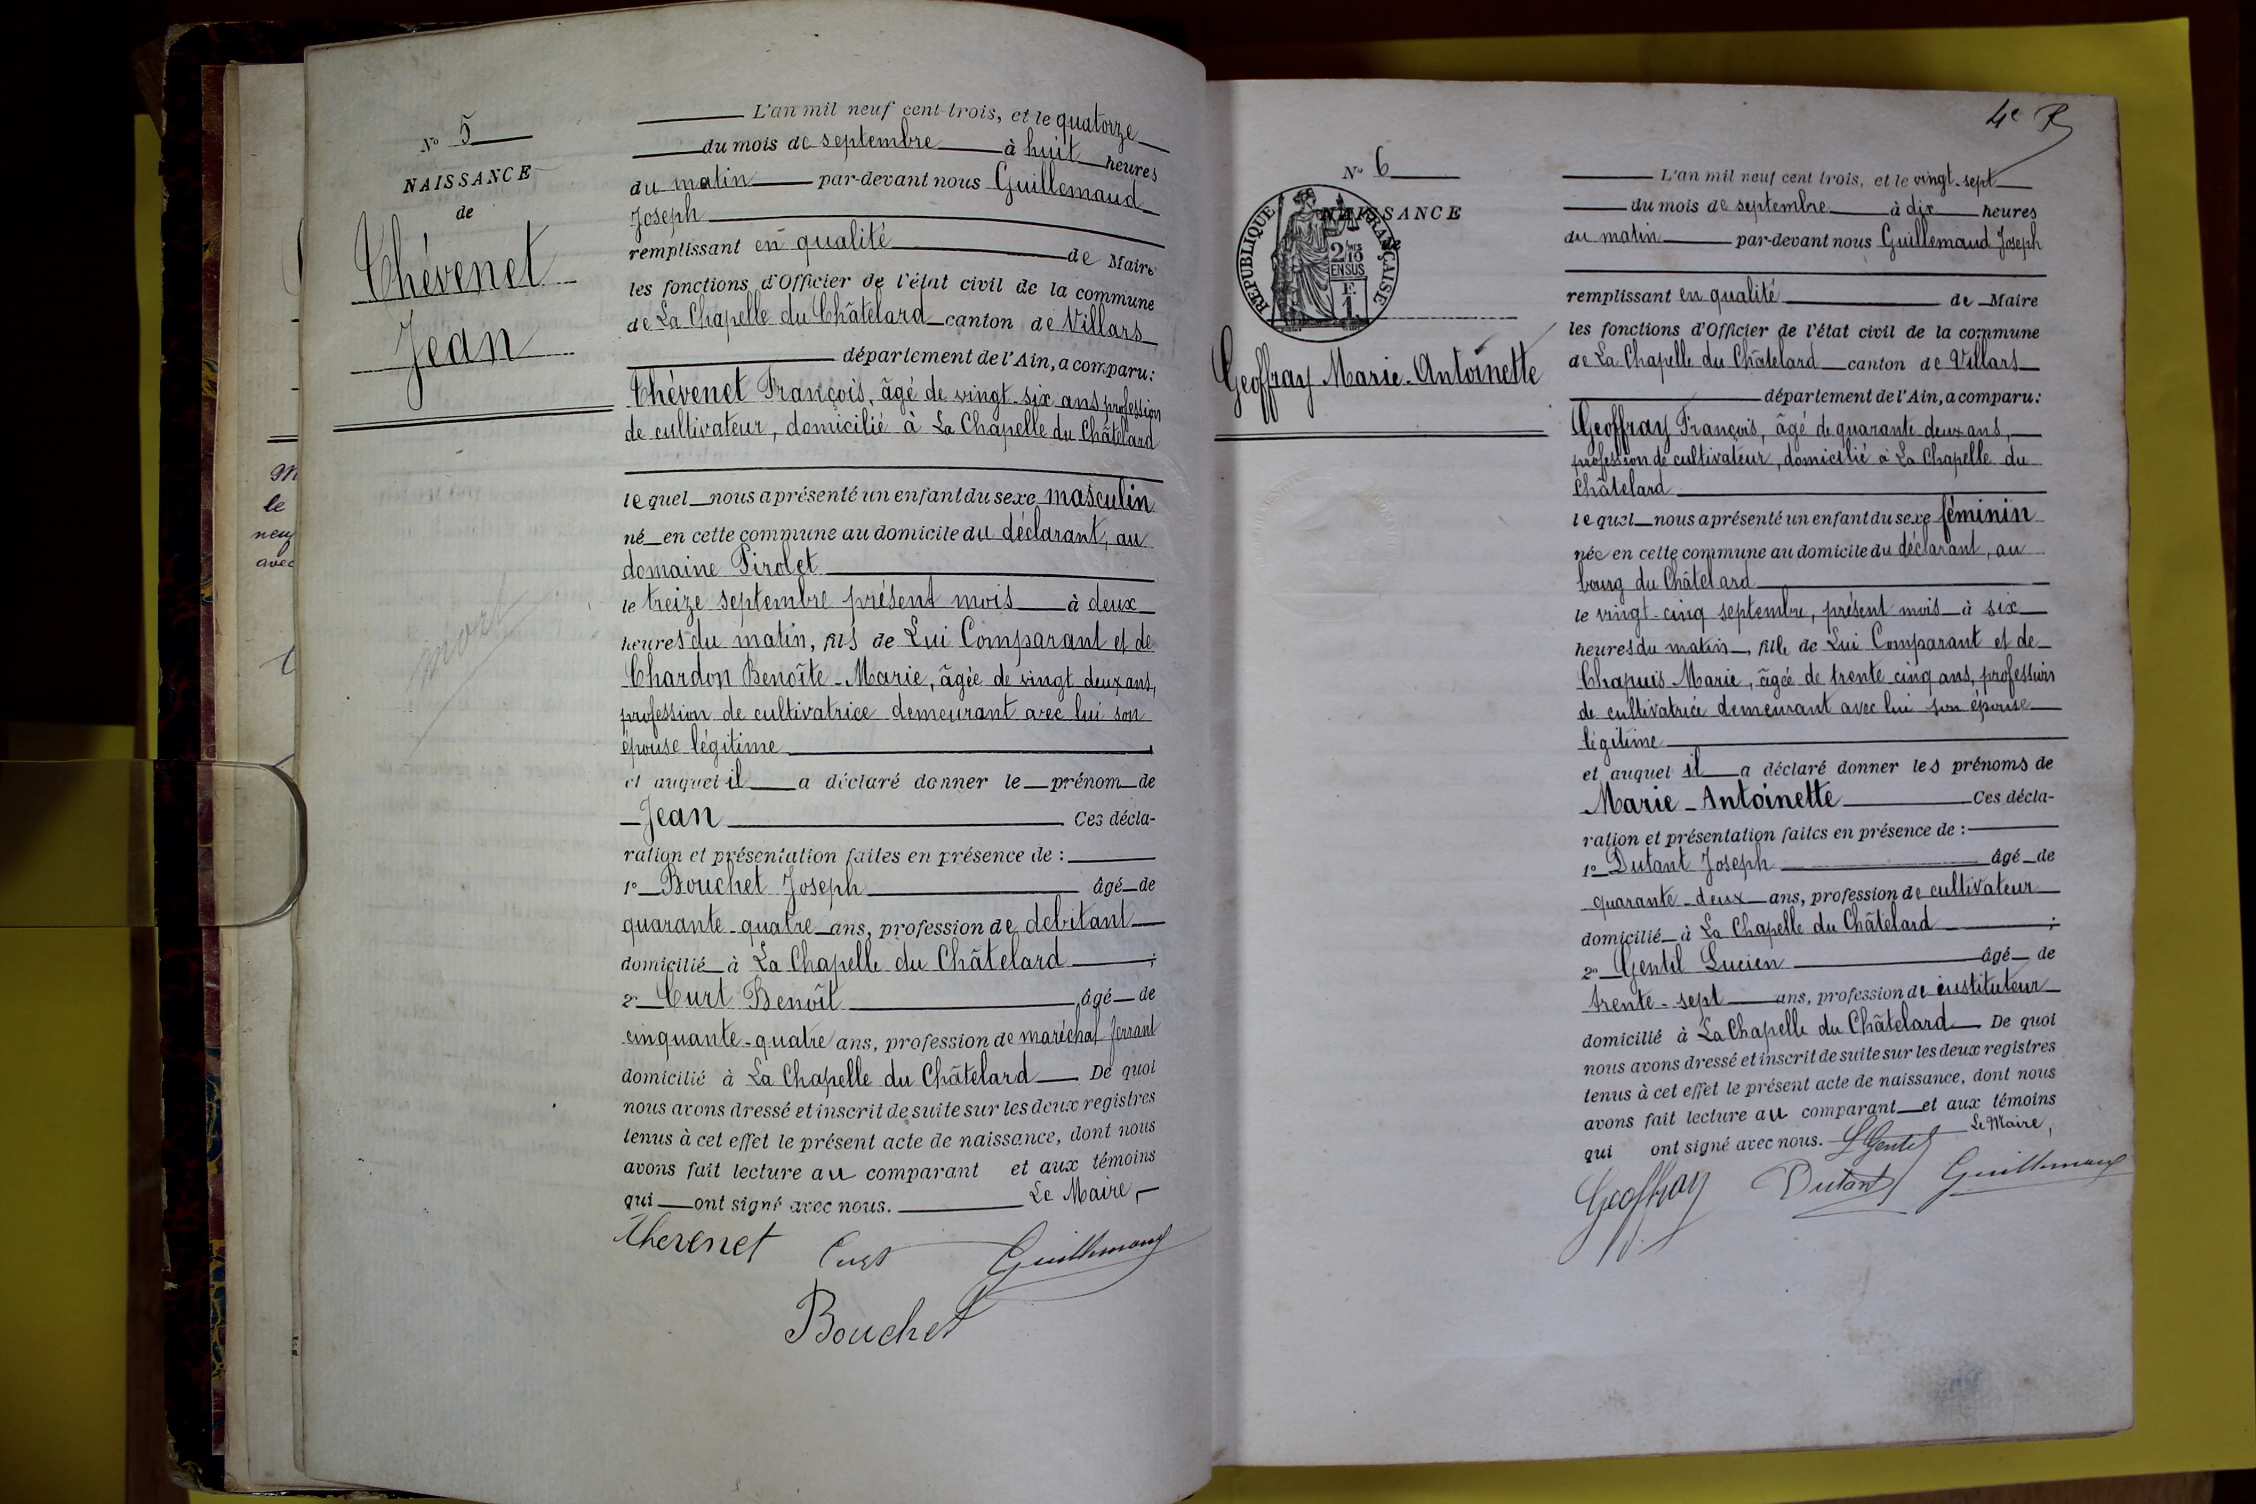 M
le
neuf
avec
N° 5
NAISSANCE
de
Thévenet
Jean
mort
L'an mil neuf cent trois, et le quatorze
du mois de septembre à huit heures
du matin par-devant nous Guillemaud
Joseph
remplissant en qualité de Maire
les fonctions d'Officier de l'état civil de la commune
de La Chapelle du Châtelard canton de Villars
département de l'Ain, a comparu:
Thévenet François, âgé de vingt-six ans profession
de cultivateur, domicilié à La Chapelle du Châtelard
lequel nous a présenté un enfant du sexe masculin
né en cette commune au domicile du déclarant, au
domaine Pirolet
le treize septembre présent mois à deux
heures du matin, fils de Lui Comparant et de
Chardon Benoîte-Marie, âgée de vingt deux ans,
profession de cultivatrice demeurant avec lui son
épouse légitime
et auquel il a déclaré donner le prénom de
Jean Ces décla-
ration et présentation faites en présence de :
1° Bouchet Joseph âgé de
quarante-quatre ans, profession de debitant
domicilié à La Chapelle du Châtelard ;
2° Curt Benoît âgé de
cinquante-quatre ans, profession de maréchal ferrant
domicilié à La Chapelle du Châtelard De quoi
nous avons dressé et inscrit de suite sur les deux registres
tenus à cet effet le présent acte de naissance, dont nous
avons fait lecture au comparant et aux témoins
qui ont signé avec nous. Le Maire,
Thevenet Curt Guillemaud
Bouchet
4e R
N° 6
NAISSANCE
de
REPUBLIQUE FRANÇAISE
2/10
EN SUS
F.
1
Geoffray Marie-Antoinette
L'an mil neuf cent trois, et le vingt-sept
du mois de septembre à dix heures
du matin par-devant nous Guillemaud Joseph
remplissant en qualité de Maire
les fonctions d'Officier de l'état civil de la commune
de La Chapelle du Châtelard canton de Villars
département de l'Ain, a comparu:
Geoffray François, âgé de quarante deux ans,
profession de cultivateur, domicilié à La Chapelle du
Châtelard
lequel nous a présenté un enfant du sexe féminin
née en cette commune au domicile du déclarant, au
bourg du Châtelard
le vingt-cinq septembre, présent mois à six
heures du matin, fille de Lui Comparant et de
Chapuis Marie, âgée de trente cinq ans, profession
de cultivatrice demeurant avec lui son épouse
légitime
et auquel il a déclaré donner les prénoms de
Marie-Antoinette Ces décla-
ration et présentation faites en présence de :
1° Dutant Joseph âgé de
quarante-deux ans, profession de cultivateur
domicilié à La Chapelle du Châtelard ;
2° Gentil Lucien âgé de
trente-sept ans, profession de instituteur
domicilié à La Chapelle du Châtelard De quoi
nous avons dressé et inscrit de suite sur les deux registres
tenus à cet effet le présent acte de naissance, dont nous
avons fait lecture au comparant et aux témoins
qui ont signé avec nous. L Gentil Le Maire,
Geoffray Dutant Guillemaud